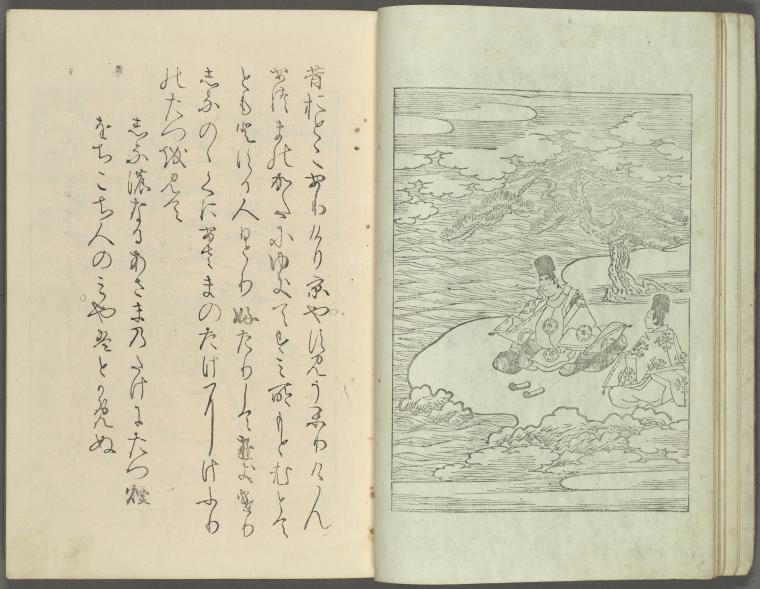 昔おとこありけり京やすみうかりけん
あつまのかたにゆきてすみ所もとむとて
ともとする人ひとりふたりしてゆきけり
しなのゝくにあさまのたけにけふり
のたつを見て
しな濃なるあさま乃たけにたつ煙
をちこち人のみやはとかめぬ